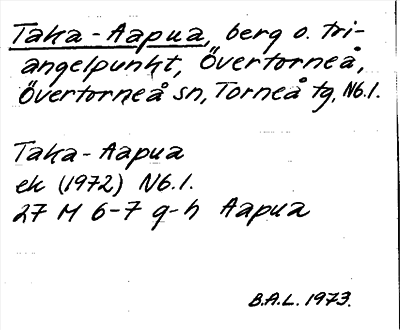 Taka-Aapua, berg o. tri-
angelpunkt, Övertorneå,
Övertorneå sn, Torneå tg, Nb.l.
Taka-Aapua
ek (1972) Nb.l.
27 M 6-7 g-h Aapua
B.A.L. 1973.